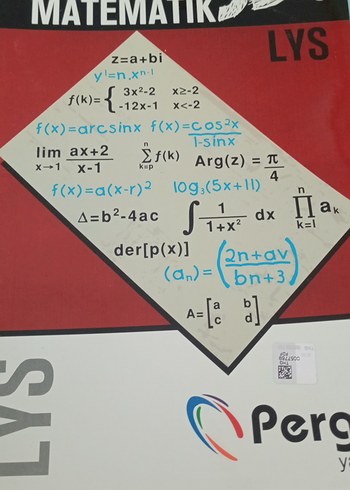 MATEMATİK
LYS
z=a+bi
y'=n.xⁿ⁻¹
f(k)={ 3x²-2 x≥-2
-12x-1 x<-2
f(x)=arcsinx f(x)=cos²x/1-sinx
lim x→1 ax+2/x-1 n Σ k=p f(k) Arg(z)=π/4
f(x)=a(x-r)² log₃(5x+11)
Δ=b²-4ac ∫ 1/1+x² dx n ∏ k=1 aₖ
der[p(x)]
(aₙ)=(2n+av/bn+3)
A=[a b
c d]
LYS
Perg